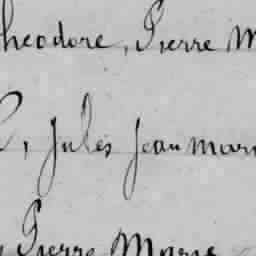 heodore, Pierre M
, Jules Jean Mari
Pierre Marie